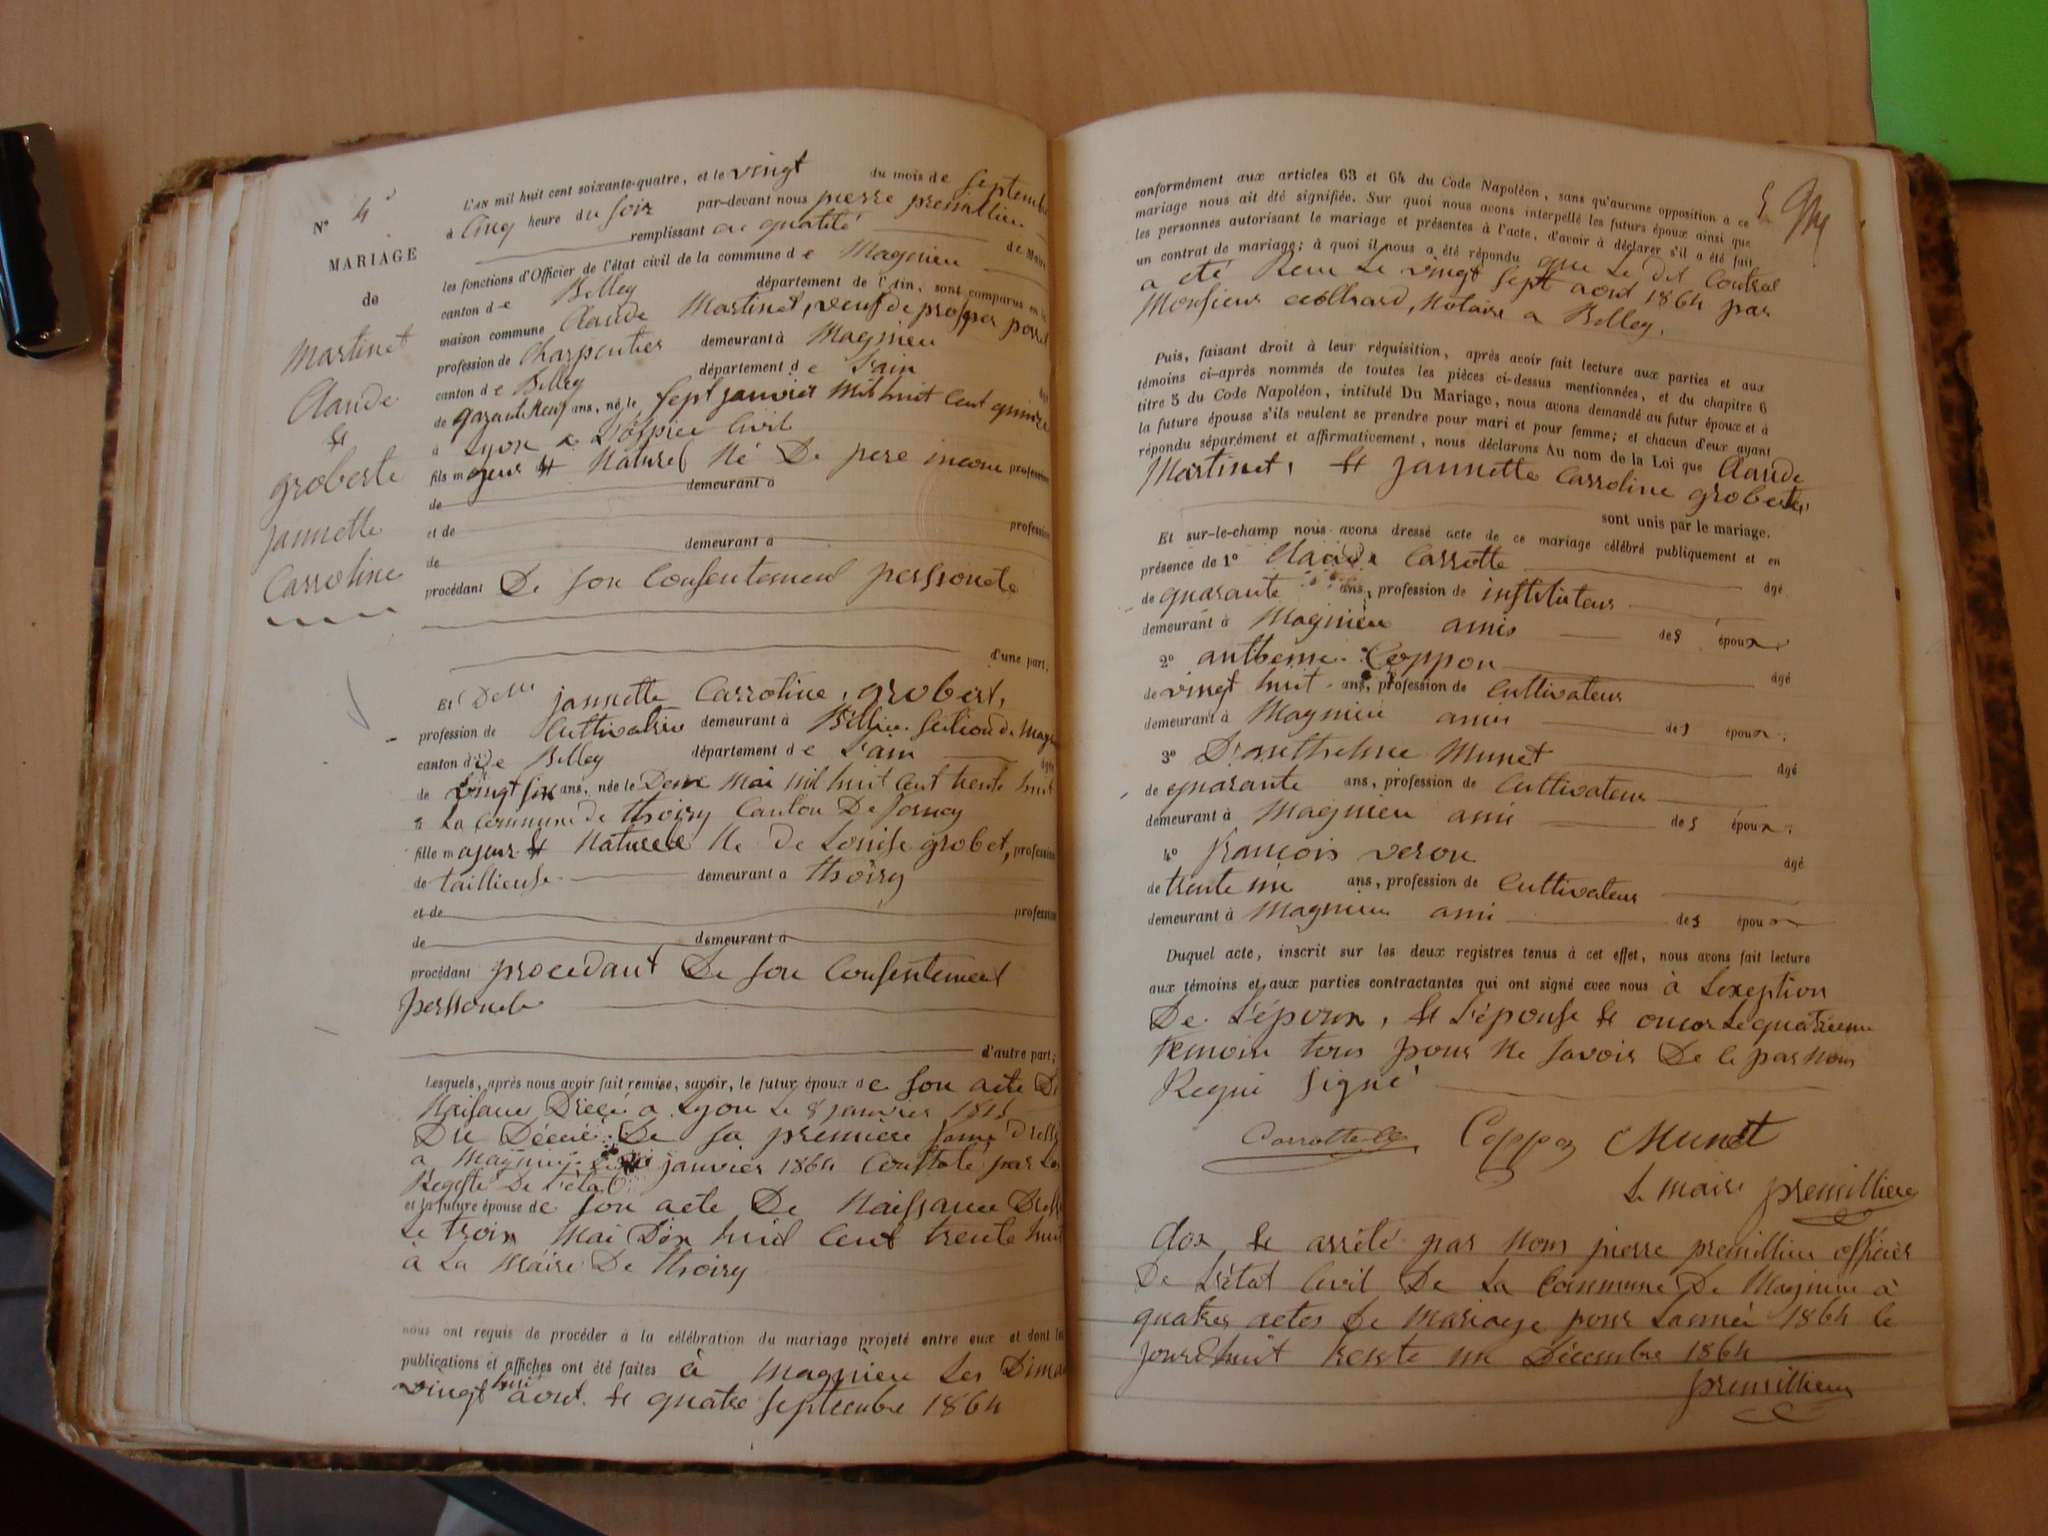 N° 4
MARIAGE
de
Martinet
Claude
et
groberte
jannette
Carroline
L'AN mil huit cent soixante-quatre, et le vingt du mois de septembre
à cinq heure du soir par-devant nous pierre premillieu
remplissant en qualité de Maire
les fonctions d'Officier de l'état civil de la commune de Magnieu
canton de Belley département de l'Ain, sont comparus en la
maison commune Claude Martinet, veuf de prosper
profession de Charpentier demeurant à Magnieu
canton de Belley département de l'ain âgé
de ans, né le sept janvier mil huit cent quinze
à Lyon a L'ospice Civil
fils majeur et Naturel Né De pere inconu profession
de demeurant à
et de profession
de demeurant à
procédant De son Consentement perssonele
d'une part.
Et Delle jannette Carroline, grobert,
profession de Cultivatrice demeurant à Billieu section de
canton de Belley département de l'ain âgée
de vingt six ans, née le Deux mai mil huit cent trente huit
à La Commune de thoiry Canton De
fille majeur et Naturele Ne de Louise grobet, profession
de taillieuse demeurant à thoiry
et de profession
de demeurant à
procédant procedant De son Consentement
perssonele
d'autre part;
Lesquels, après nous avoir fait remise, savoir, le futur époux de son acte De
Naissance à Lyon Le 8 janvier 1815
Du De sa premiere
a Magnieu janvier 1864 Constaté par Les
Registe De L'état
et la future épouse de son acte De Naissance
Le trois Mai huit Cent trente huit
à La Mairie De thoiry
nous ont requis de procéder à la célébration du mariage projeté entre eux et dont les
publications et affiches ont été faites à Magnieu Les
vingt huit aout et quatre septembre 1864
conformément aux articles 63 et 64 du Code Napoléon, sans qu'aucune opposition à ce
mariage nous ait été signifiée. Sur quoi nous avons interpellé les futurs époux ainsi que
les personnes autorisant le mariage et présentes à l'acte, d'avoir à déclarer s'il a été fait
un contrat de mariage; à quoi il nous a été répondu que Le dit Contrat
a été Le vingt sept aout 1864 par
Monsieur Notaire a Belley.
Puis, faisant droit à leur réquisition, après avoir fait lecture aux parties et aux
témoins ci-après nommés de toutes les pièces ci-dessus mentionnées, et du chapitre 6
titre 5 du Code Napoléon, intitulé Du Mariage, nous avons demandé au futur époux et à
la future épouse s'ils veulent se prendre pour mari et pour femme; et chacun d'eux ayant
répondu séparément et affirmativement, nous déclarons Au nom de la Loi que Claude
Martinet, et jannette Carroline groberte,
sont unis par le mariage.
Et sur-le-champ nous avons dressé acte de ce mariage célébré publiquement et en
présence de 1° Claude Carrotte âgé
de quarante ans, profession de instituteur
demeurant à Magnieu amis des époux
2° antheme Coppon âgé
de vingt huit ans, profession de Cultivateur
demeurant à Magnieu amis des époux;
3° Munet âgé
de quarante ans, profession de Cultivateur
demeurant à Magnieu ami des époux;
4° françois veron âgé
de trente un ans, profession de Cultivateur
demeurant à Magnieu ami des époux
Duquel acte, inscrit sur les deux registres tenus à cet effet, nous avons fait lecture
aux témoins et aux parties contractantes qui ont signé avec nous à Lexeption
De L'époux, et L'épouse et Le quatrieme
temoin tous pour Ne savoir De ce par Nous
Requi signé
Coppon Munet
Le maire premillieu
Clos et arrêté par Nous pierre premillieu officier
De L'état Civil De La Commune De Magnieu à
quatres actes De Mariage pour Lannée 1864 le
jourdhuit trente un Décembre 1864
premillieu